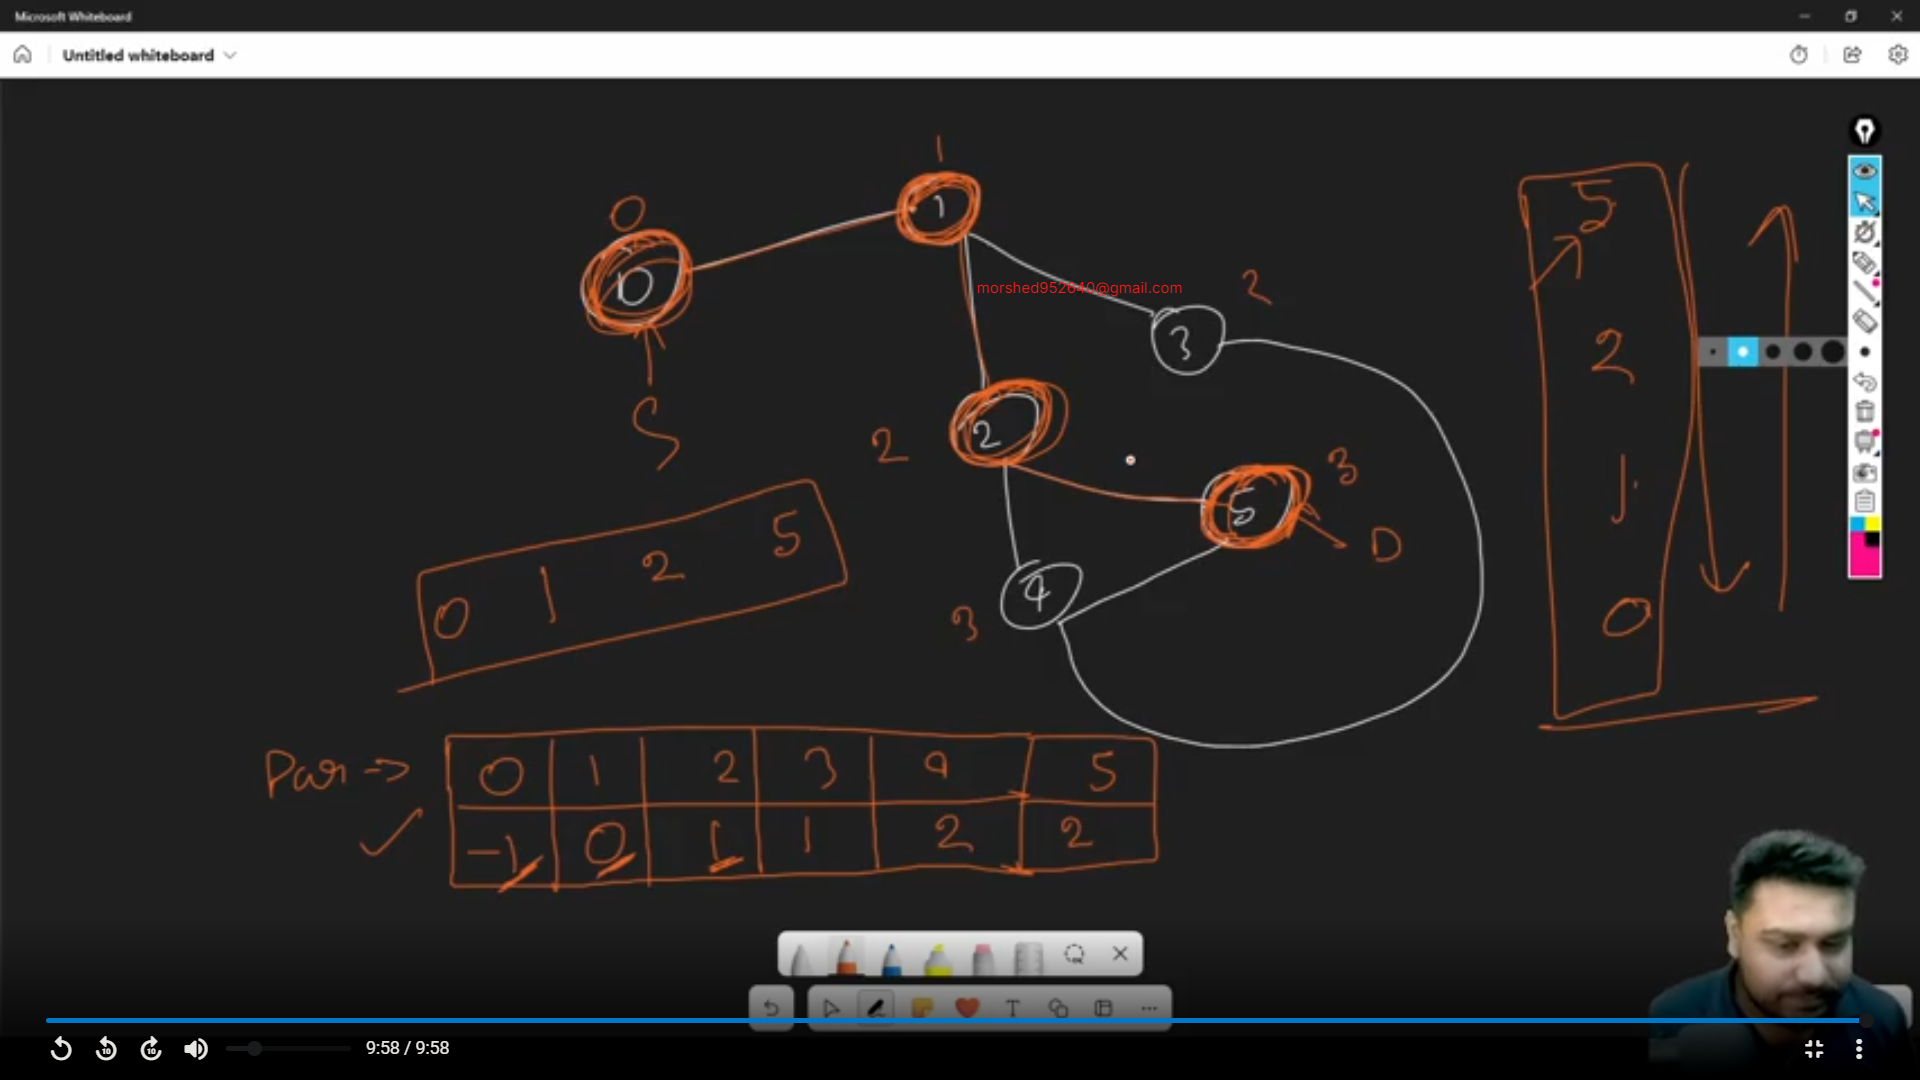 Microsoft Whiteboard
Untitled whiteboard
1
0
1
0
morshed952640@gmail.com
2
3
S
2
2
3
5
D
4
3
0 1 2 5
5
2
1
0
Par -> 0 1 2 3 4 5
-1 0 1 1 2 2
T
10 10 9:58 / 9:58